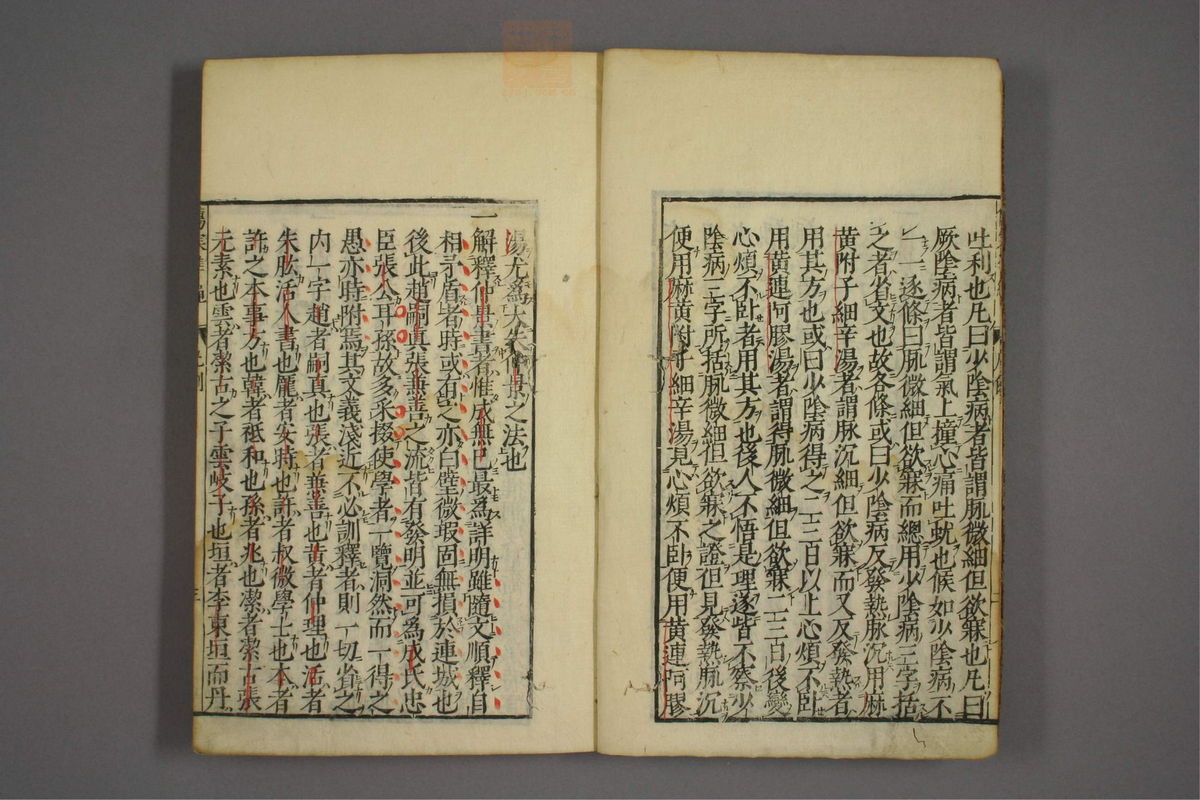 吐利也凡曰少陰病者皆謂脉微細但欲寐也凡曰
厥陰病者皆謂氣上撞心痛吐蚘也候如少陰病不
一一逐條曰脉微細但欲寐而總用少陰病三字括
之者省文也故各條或曰少陰病反發熱脉沉用麻
黄附子細辛湯者謂脉沉細但欲寐而又反發熱者
用其方也或曰少陰病得之二三日以上心煩不卧
用黄連阿膠湯者謂得脉微細但欲寐二三日後變
心煩不卧者用其方也後人不悟是理遂皆不察少
陰病三字所括脉微細但欲寐之證但見發熱脉沉
便用麻黄附子細辛湯見心煩不卧便用黄連阿膠
湯尤為大失仲景之法也
一解釋仲景書者惟成無已最為詳明雖隨文順釋自
相矛盾者時或有之亦白璧微瑕固無損於連城也
後此趙嗣真張兼善之流皆有發明並可為成氏忠
臣張公耳孫故多采掇使學者一覽洞然而一得之
愚亦時附焉其文義淺近不必訓釋者則一切省之
内一字趙者嗣真也張者兼善也黄者仲理也活者
朱肱活人書也龐者安時也許者叔微學士也本者
許之本事方也韓者祗和也孫者兆也潔者潔古張
元素也雲者潔古之子雲岐子也垣者李東垣而丹